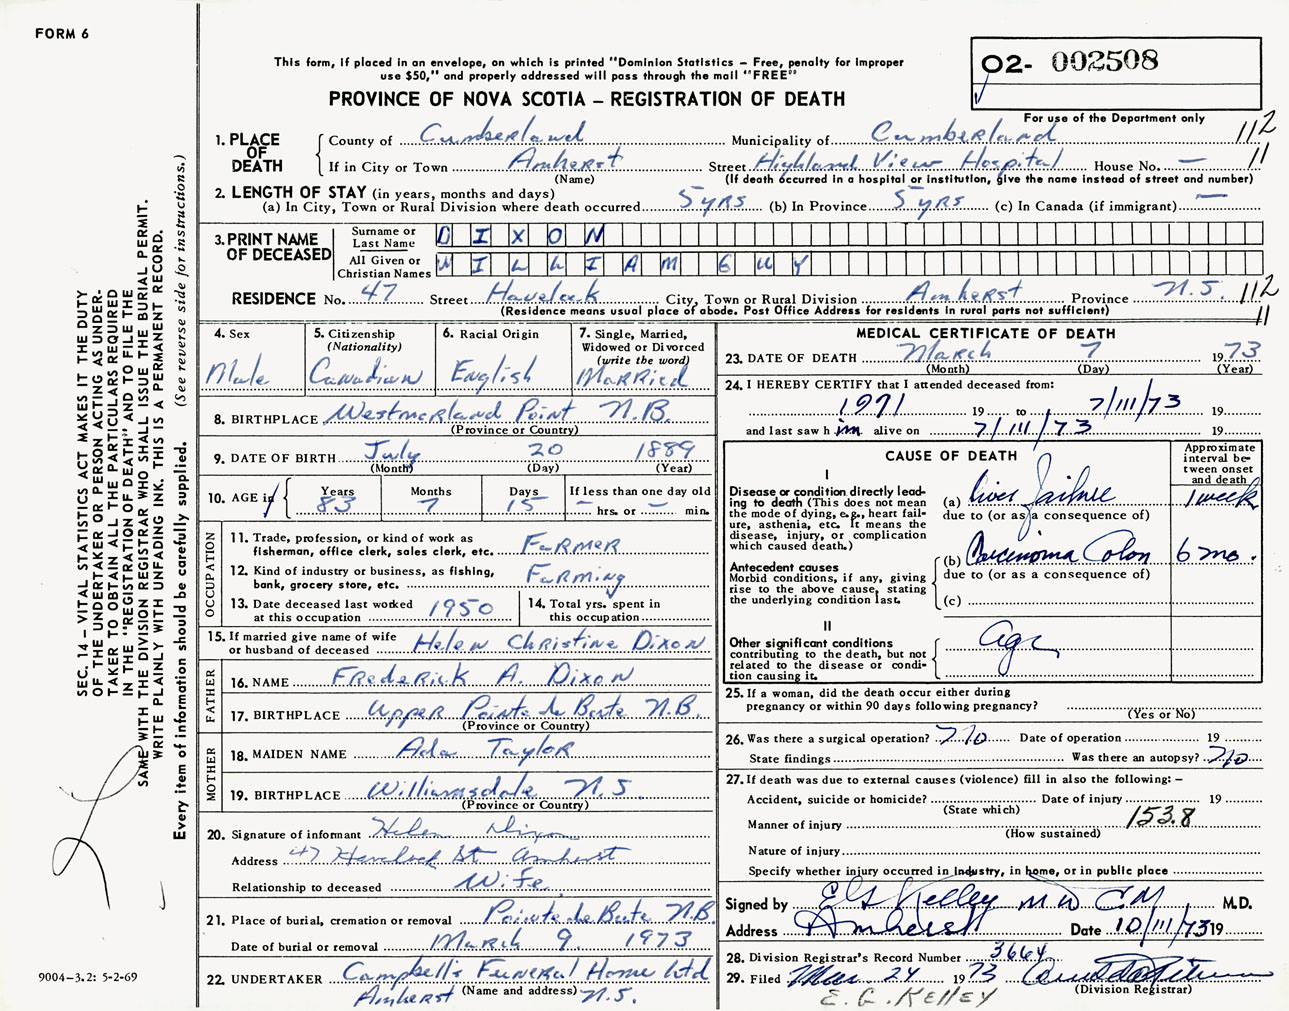 FORM 6
This form, if placed in an envelope, on which is printed "Dominion Statistics – Free, penalty for improper
use $50," and properly addressed will pass through the mail "FREE"
PROVINCE OF NOVA SCOTIA – REGISTRATION OF DEATH
O2- 002508
For use of the Department only
1. PLACE OF DEATH
County of Cumberland Municipality of Cumberland 112
If in City or Town Amherst Street Highland View Hospital House No. — 11
(Name) (If death occurred in a hospital or institution, give the name instead of street and number)
2. LENGTH OF STAY (in years, months and days)
(a) In City, Town or Rural Division where death occurred 5 yrs (b) In Province 5 yrs (c) In Canada (if immigrant) —
3. PRINT NAME OF DECEASED
Surname or Last Name DIXON
All Given or Christian Names WILLIAM GUY
RESIDENCE No. 47 Street Havelock City, Town or Rural Division Amherst Province N.S. 112
(Residence means usual place of abode. Post Office Address for residents in rural parts not sufficient) 11
4. Sex
Male
5. Citizenship
(Nationality)
Canadian
6. Racial Origin
English
7. Single, Married,
Widowed or Divorced
(write the word)
Married
8. BIRTHPLACE Westmorland Point N.B.
(Province or Country)
9. DATE OF BIRTH July 20 1889
(Month) (Day) (Year)
10. AGE if Years Months Days If less than one day old
83 7 15 — hrs. or — min.
OCCUPATION
11. Trade, profession, or kind of work as
fisherman, office clerk, sales clerk, etc. Farmer
12. Kind of industry or business, as fishing,
bank, grocery store, etc. Farming
13. Date deceased last worked
at this occupation 1950
14. Total yrs. spent in
this occupation
15. If married give name of wife
or husband of deceased Helen Christine Dixon
FATHER
16. NAME Frederick A. Dixon
17. BIRTHPLACE Upper Pointe de Bute N.B.
(Province or Country)
MOTHER
18. MAIDEN NAME Ada Taylor
19. BIRTHPLACE Williamsdale N.S.
(Province or Country)
20. Signature of informant Helen Dixon
Address 47 Havelock St Amherst
Relationship to deceased Wife
21. Place of burial, cremation or removal Pointe de Bute N.B.
Date of burial or removal March 9 1973
22. UNDERTAKER Campbell's Funeral Home Ltd
(Name and address)
Amherst N.S.
MEDICAL CERTIFICATE OF DEATH
23. DATE OF DEATH March 7 1973
(Month) (Day) (Year)
24. I HEREBY CERTIFY that I attended deceased from:
1971 19 to 7/III/73 19
and last saw him alive on 7/III/73 19
CAUSE OF DEATH
Approximate
interval be-
tween onset
and death
I
Disease or condition directly lead-
ing to death (This does not mean
the mode of dying, e.g., heart fail-
ure, asthenia, etc. It means the
disease, injury, or complication
which caused death.)
(a) Liver Failure 1 week
due to (or as a consequence of)
Antecedent causes
Morbid conditions, if any, giving
rise to the above cause, stating
the underlying condition last.
(b) Carcinoma Colon 6 mo.
due to (or as a consequence of)
(c)
II
Other significant conditions
contributing to the death, but not
related to the disease or condi-
tion causing it.
Age
25. If a woman, did the death occur either during
pregnancy or within 90 days following pregnancy?
(Yes or No)
26. Was there a surgical operation? no Date of operation 19
State findings Was there an autopsy? no
27. If death was due to external causes (violence) fill in also the following: –
Accident, suicide or homicide? Date of injury 19
(State which)
Manner of injury 153.8
(How sustained)
Nature of injury
Specify whether injury occurred in industry, in home, or in public place
Signed by E G Kelley M D C M M.D.
Address Amherst Date 10/III/73 19
28. Division Registrar's Record Number 3664
29. Filed Mar 24 1973
(Division Registrar)
E. G. KELLEY
SEC. 14 – VITAL STATISTICS ACT MAKES IT THE DUTY
OF THE UNDERTAKER OR PERSON ACTING AS UNDER-
TAKER TO OBTAIN ALL THE PARTICULARS REQUIRED
IN THE "REGISTRATION OF DEATH" AND TO FILE THE
SAME WITH THE DIVISION REGISTRAR WHO SHALL ISSUE THE BURIAL PERMIT.
WRITE PLAINLY WITH UNFADING INK. THIS IS A PERMANENT RECORD.
Every item of information should be carefully supplied. (See reverse side for instructions.)
9004–3.2: 5-2-69